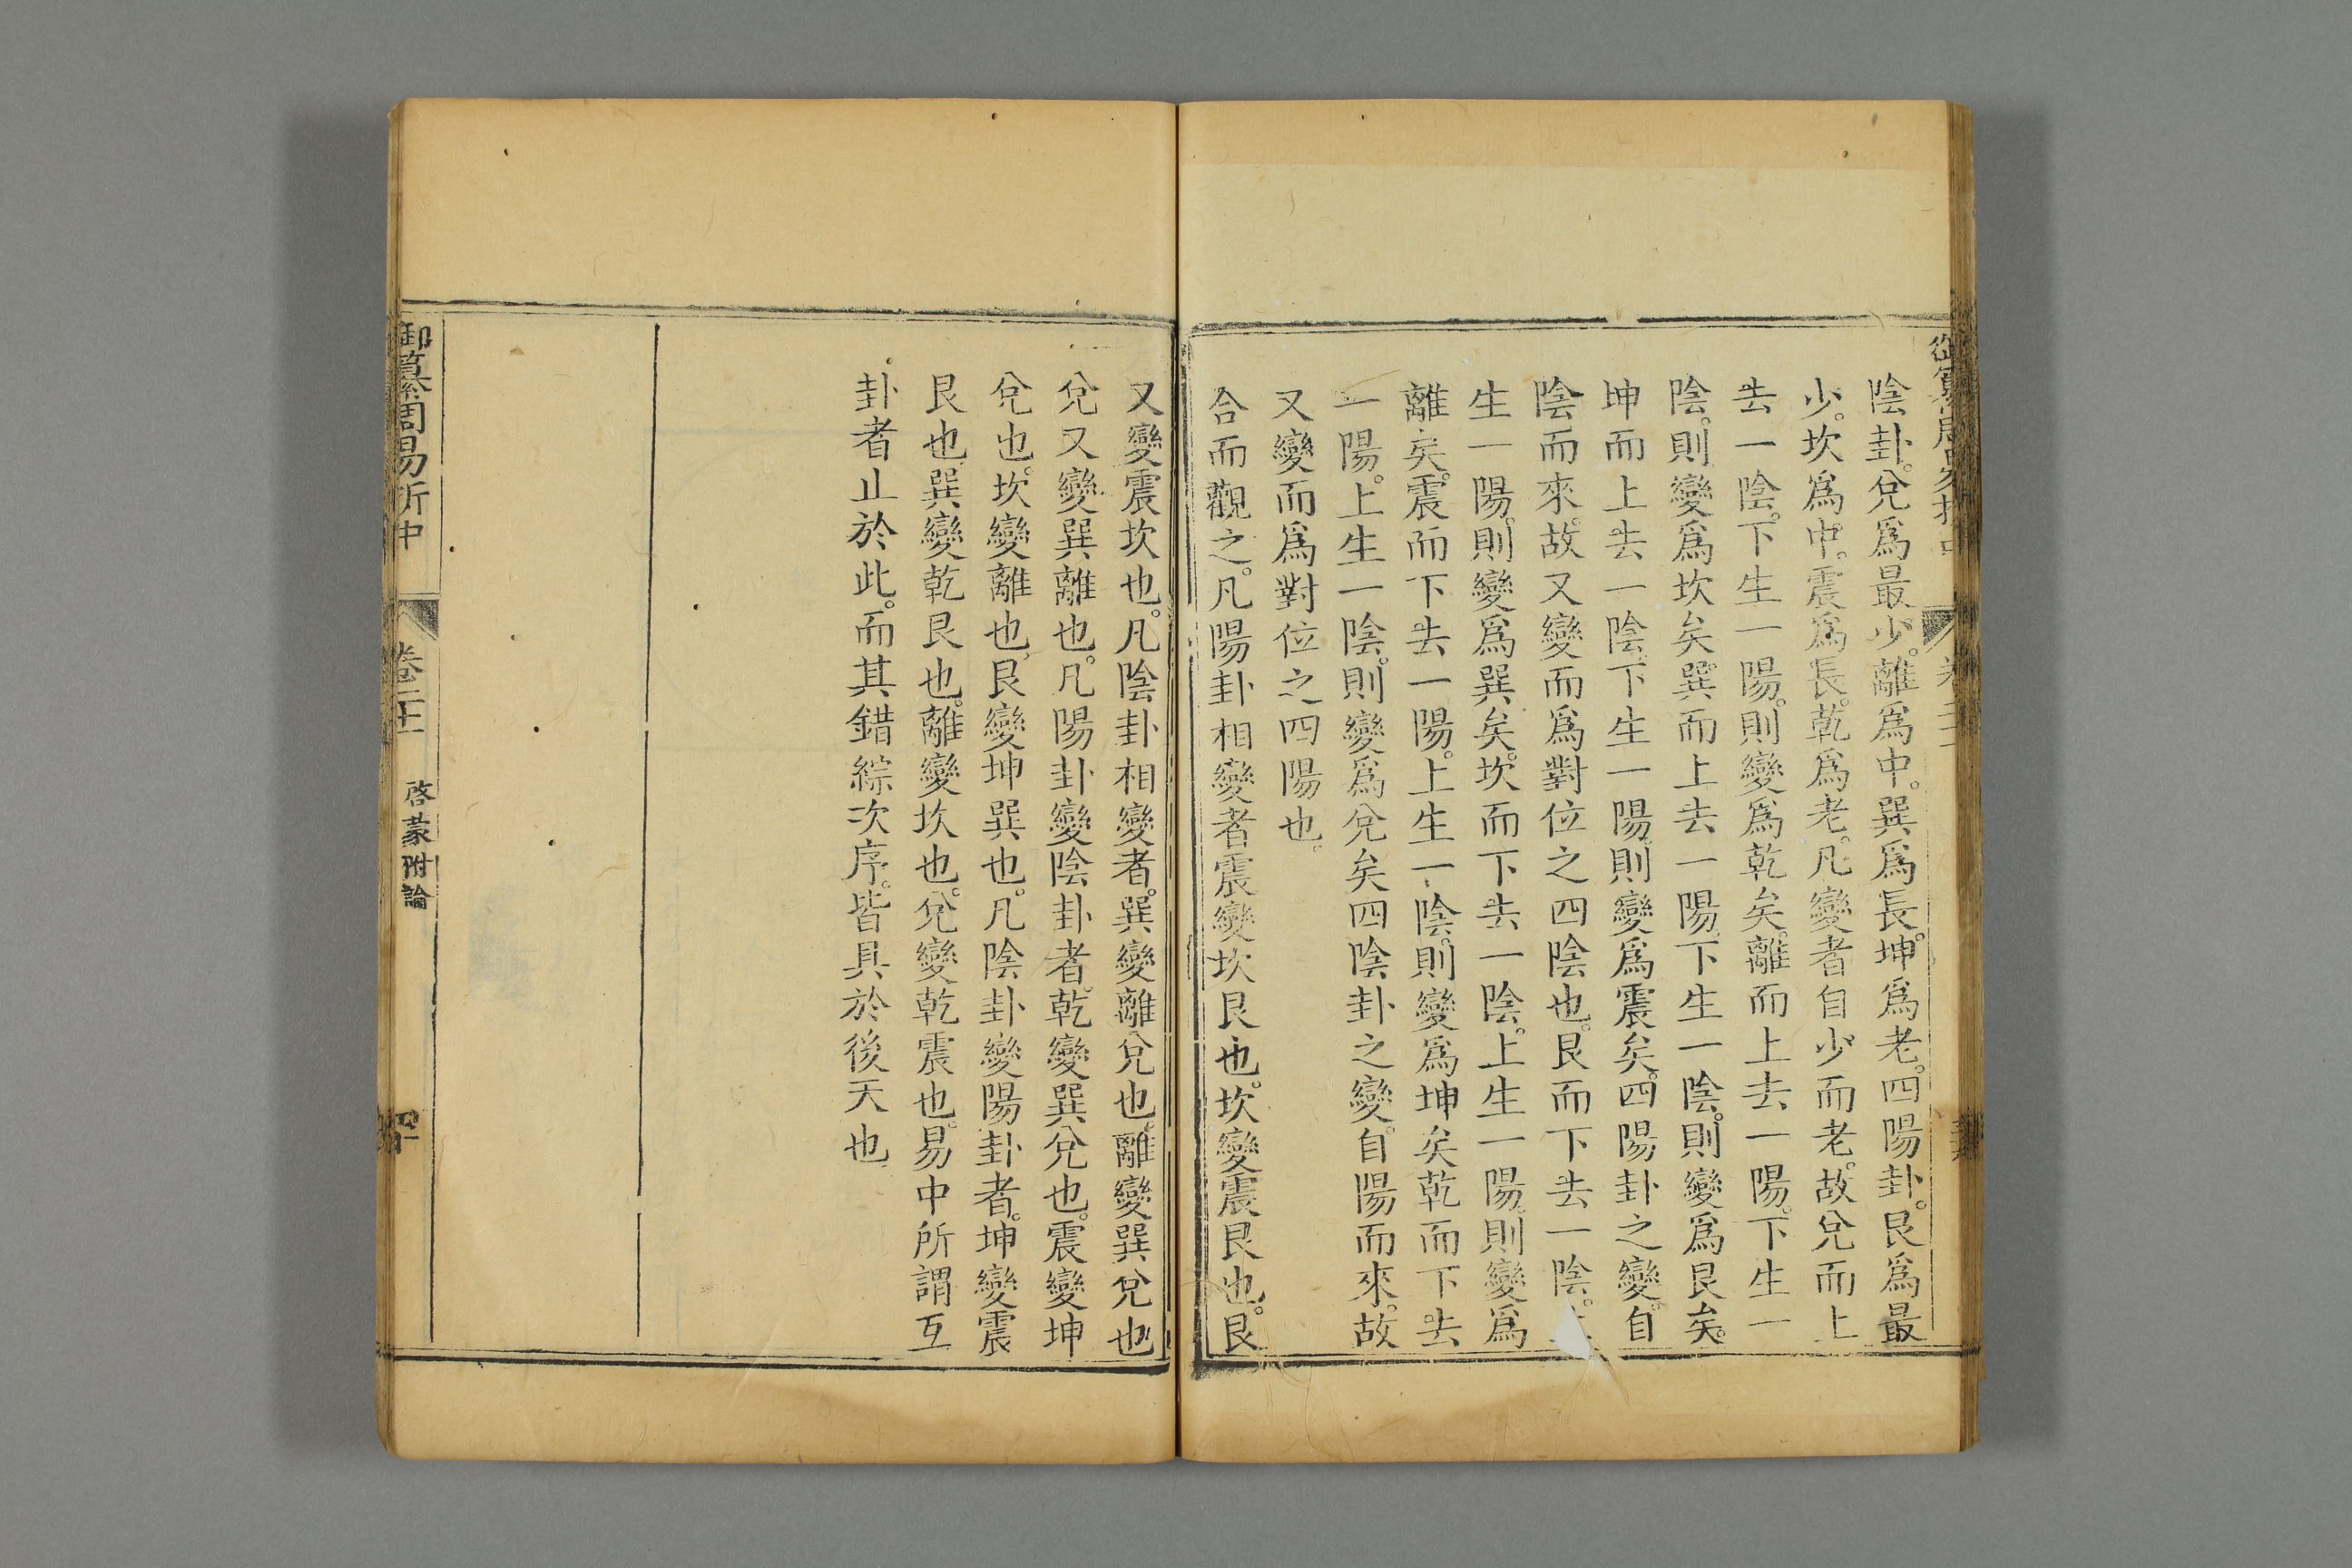 陰卦。兌爲最少。離爲中。巽爲長。坤爲老。四陽卦。艮爲最
少。坎爲中。震爲長。乾爲老。凡變者自少而老。故兌而上
去一陰。下生一陽。則變爲乾矣。離而上去一陽。下生一
陰。則變爲坎矣。巽而上去一陽。下生一陰。則變爲艮矣。
坤而上去一陰。下生一陽。則變爲震矣。四陽卦之變。自
陰而來。故又變而爲對位之四陰也。艮而下去一陰。
生一陽。則變爲巽矣。坎而下去一陰。上生一陽。則變爲
離矣。震而下去一陽。上生一陰。則變爲坤矣乾而下去
一陽。上生一陰。則變爲兌矣四陰卦之變。自陽而來。故
又變而爲對位之四陽也。
合而觀之。凡陽卦相變者震變坎艮也。坎變震艮也。艮
又變震坎也。凡陰卦相變者。巽變離兌也。離變巽兌也
兌又變巽離也。凡陽卦變陰卦者。乾變巽兌也。震變坤
兌也。坎變離也。艮變坤巽也。凡陰卦變陽卦者。坤變震
艮也。巽變乾艮也。離變坎也。兌變乾震也。易中所謂互
卦者止於此。而其錯綜次序。皆具於後天也
御纂周易折中
卷二十
啓蒙附論